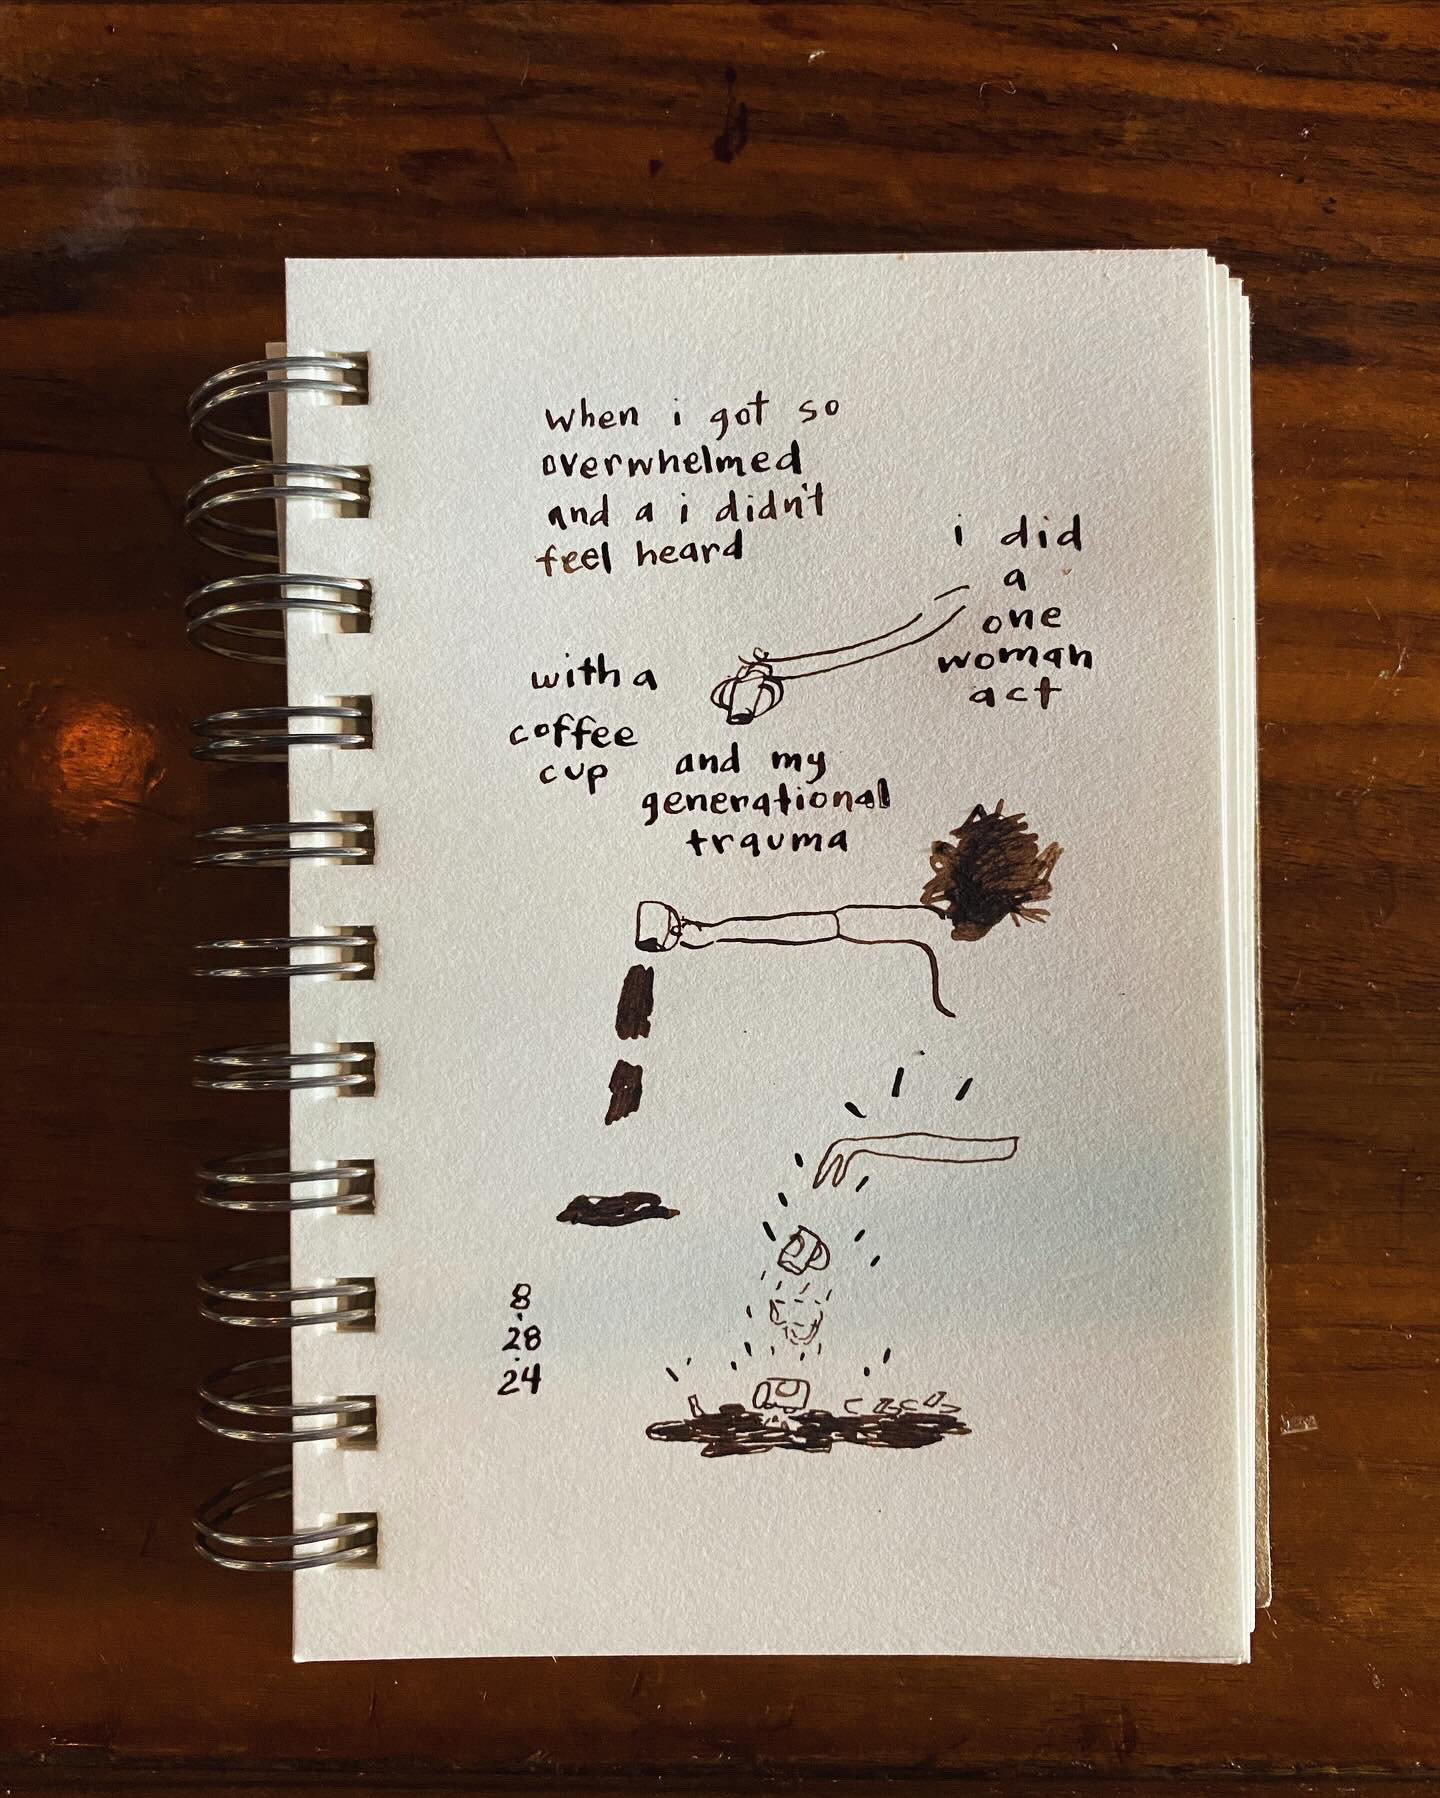 when i got so
overwhelmed
and a i didn't
feel heard
i did
a
one
woman
act
with a
coffee
cup
and my
generational
trauma
8
28
24